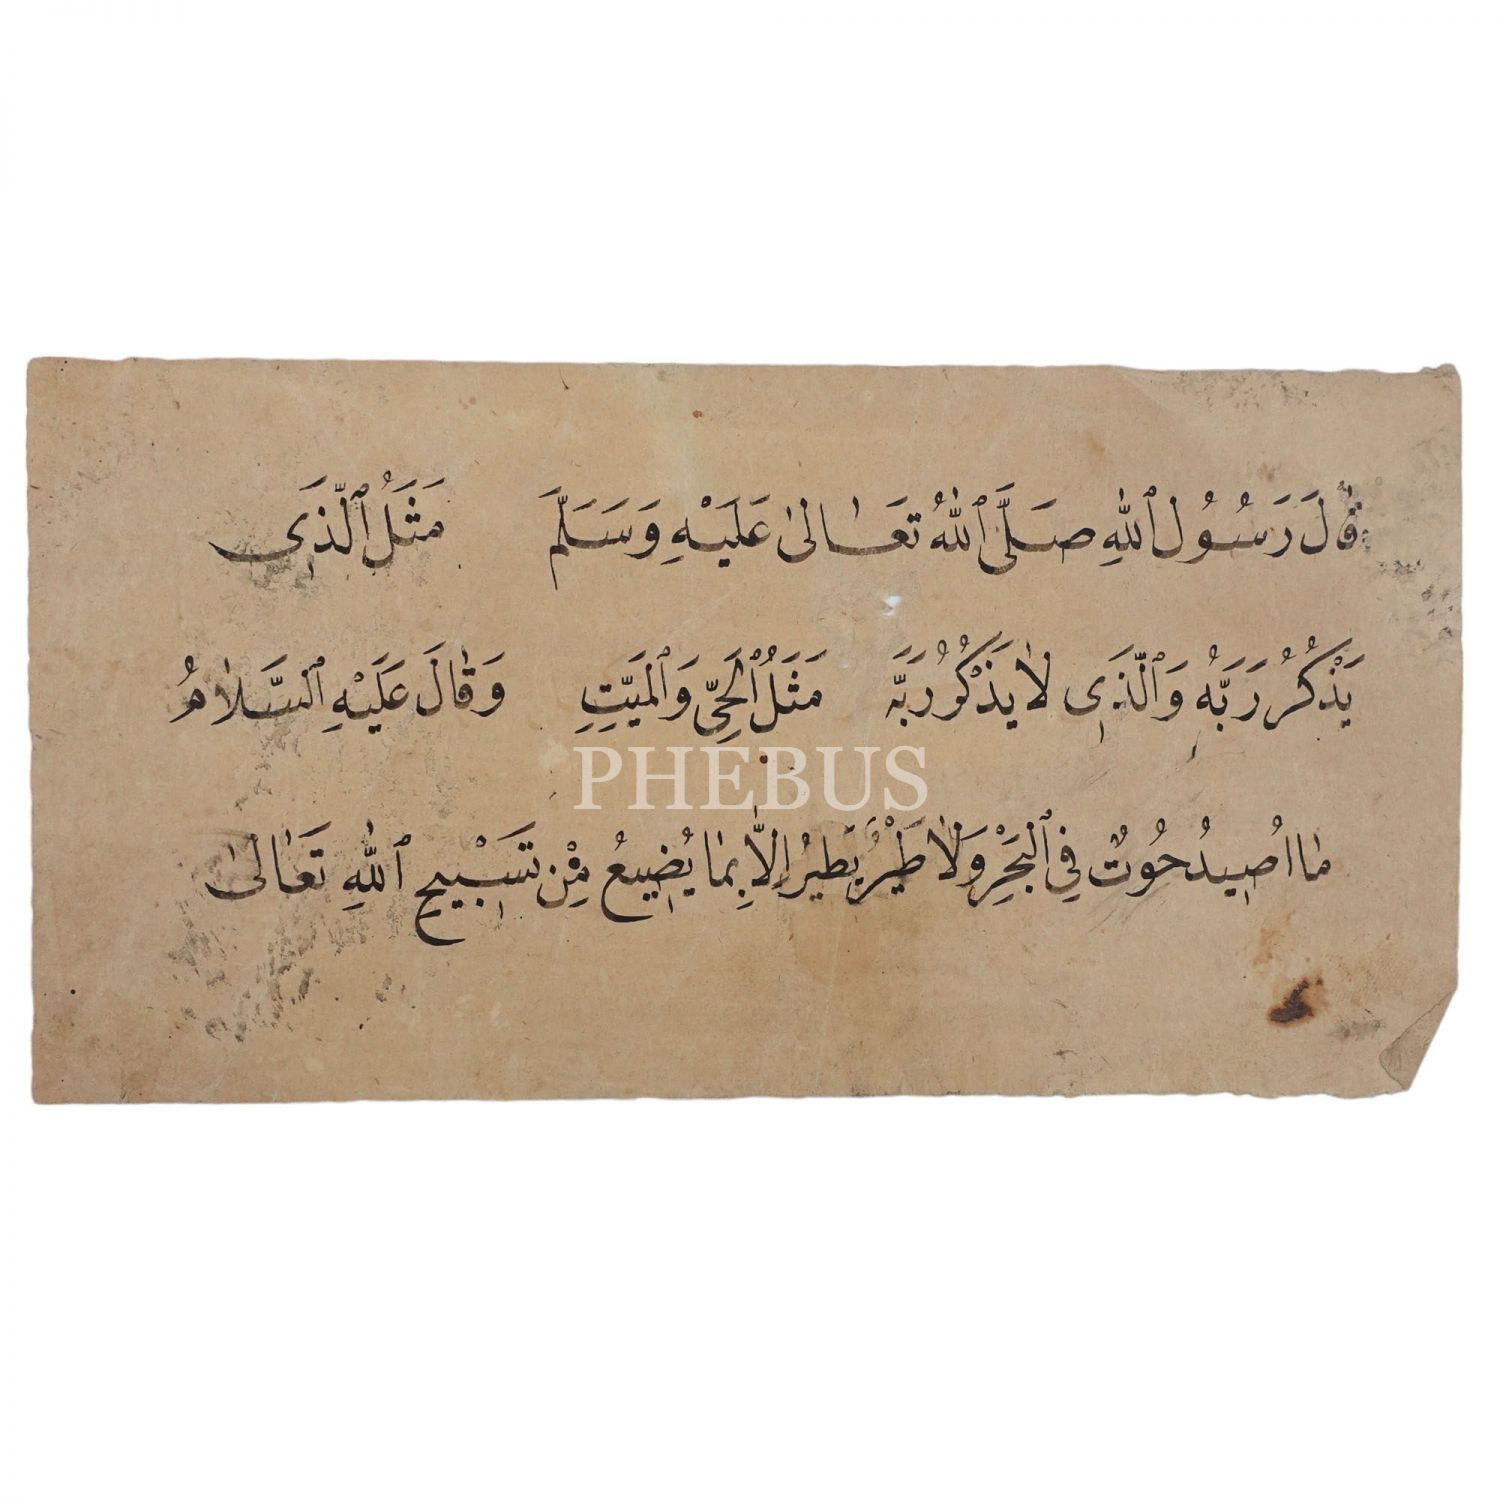 قَالَ رَسُولُ ٱللهِ صَلَّى ٱللهُ تَعَالىٰ عَلَيْهِ وَسَلَّمَ مَثَلُ ٱلَّذِى
يَذْكُرُ رَبَّهُ وَٱلَّذِى لَا يَذْكُرُ رَبَّهُ مَثَلُ ٱلْحَيِّ وَٱلْمَيِّتِ وَقَالَ عَلَيْهِ ٱلسَّلَامُ
PHEBUS
مَا اُصِيدُ حُوتٌ فِى ٱلْبَحْرِ وَلَا طَيْرٌ يَطيرُ اِلاَّ بِمَا يُضِيعُ مِنْ تَسْبِيحِ ٱللهِ تَعَالىٰ